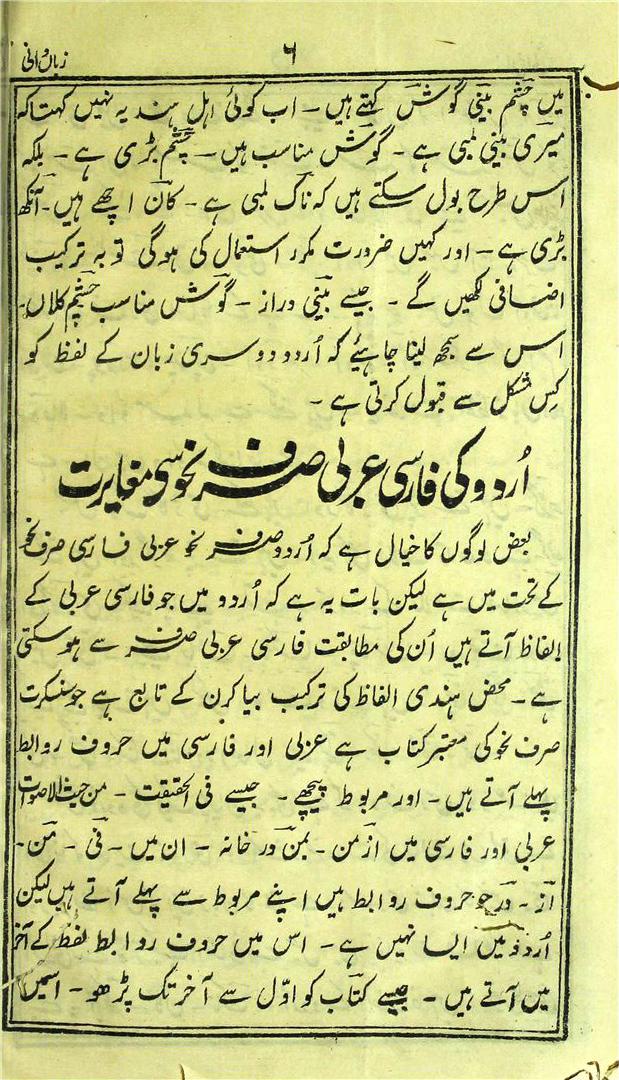 زباندانی
۶
میں چشم بینی گوش کہتے ہیں ۔ اب کوئی اہل ہند یہ نہیں کہتا کہ
میری بینی لمبی ہے ۔ گوش مناسب ہیں ۔ چشم بڑی ہے ۔ بلکہ
اس طرح بول سکتے ہیں کہ ناک لمبی ہے ۔ کان اچھے ہیں ۔ آنکھ
بڑی ہے ۔ اور کہیں ضرورت مکرر استعمال کی ہوگی تو بہ ترکیب
اضافی لکھیں گے ۔ جیسے بینی دراز ۔ گوش مناسب چشم کلاں ۔
اس سے سمجھ لینا چاہیئے کہ اُردو دوسری زبان کے لفظ کو
کِس شکل سے قبول کرتی ہے ۔
اُردو کی فارسی عربی صرف نحو سی مغایرت
بعض لوگوں کا خیال ہے کہ اُردو صرف نحو عربی فارسی صرف نحو
کے تحت میں ہے لیکن بات یہ ہے کہ اُردو میں جو فارسی عربی کے
الفاظ آتے ہیں اُن کی مطابقت فارسی عربی صرف سے ہوسکتی
ہے ۔ محض ہندی الفاظ کی ترکیب بیاکرن کے تابع ہے جو سنسکرت
صرف نحو کی معتبر کتاب ہے عربی اور فارسی میں حروف روابط
پہلے آتے ہیں ۔ اور مربوط پیچھے ۔ جیسے فی الحقیقت ۔ من حیث الاصوات
عربی اور فارسی میں از من ۔ بمن در خانہ ۔ ان میں ۔ فی ۔ من ۔
از ۔ در جو حروف روابط ہیں اپنے مربوط سے پہلے آتے ہیں لیکن
اُردو میں ایسا نہیں ہے ۔ اس میں حروف روابط لفظ کے آخر
میں آتے ہیں ۔ جیسے کتاب کو اوّل سے آخر تک پڑھو ۔ اسمیں